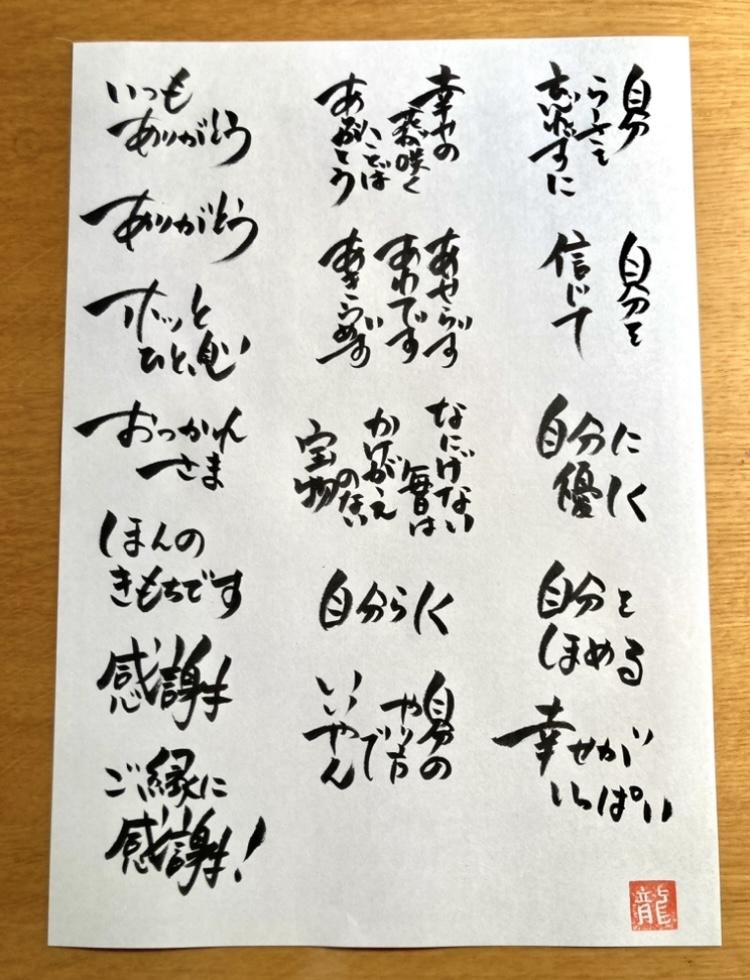 いつも
ありがとう
ありがとう
ホッと
ひと息
おつかれ
さま
ほんの
きもちです
感謝
ご縁に
感謝!
幸せの
花が咲く
ことば
ありがとう
あせらず
あわてず
あきらめず
なにげない
毎日は
かけがえ
のない
宝物
自分らしく
自分の
やり方
で
いいやん
自分
らしさを
忘れずに
自分を
信じて
自分に
優しく
自分を
ほめる
幸せが
いっぱい
龍